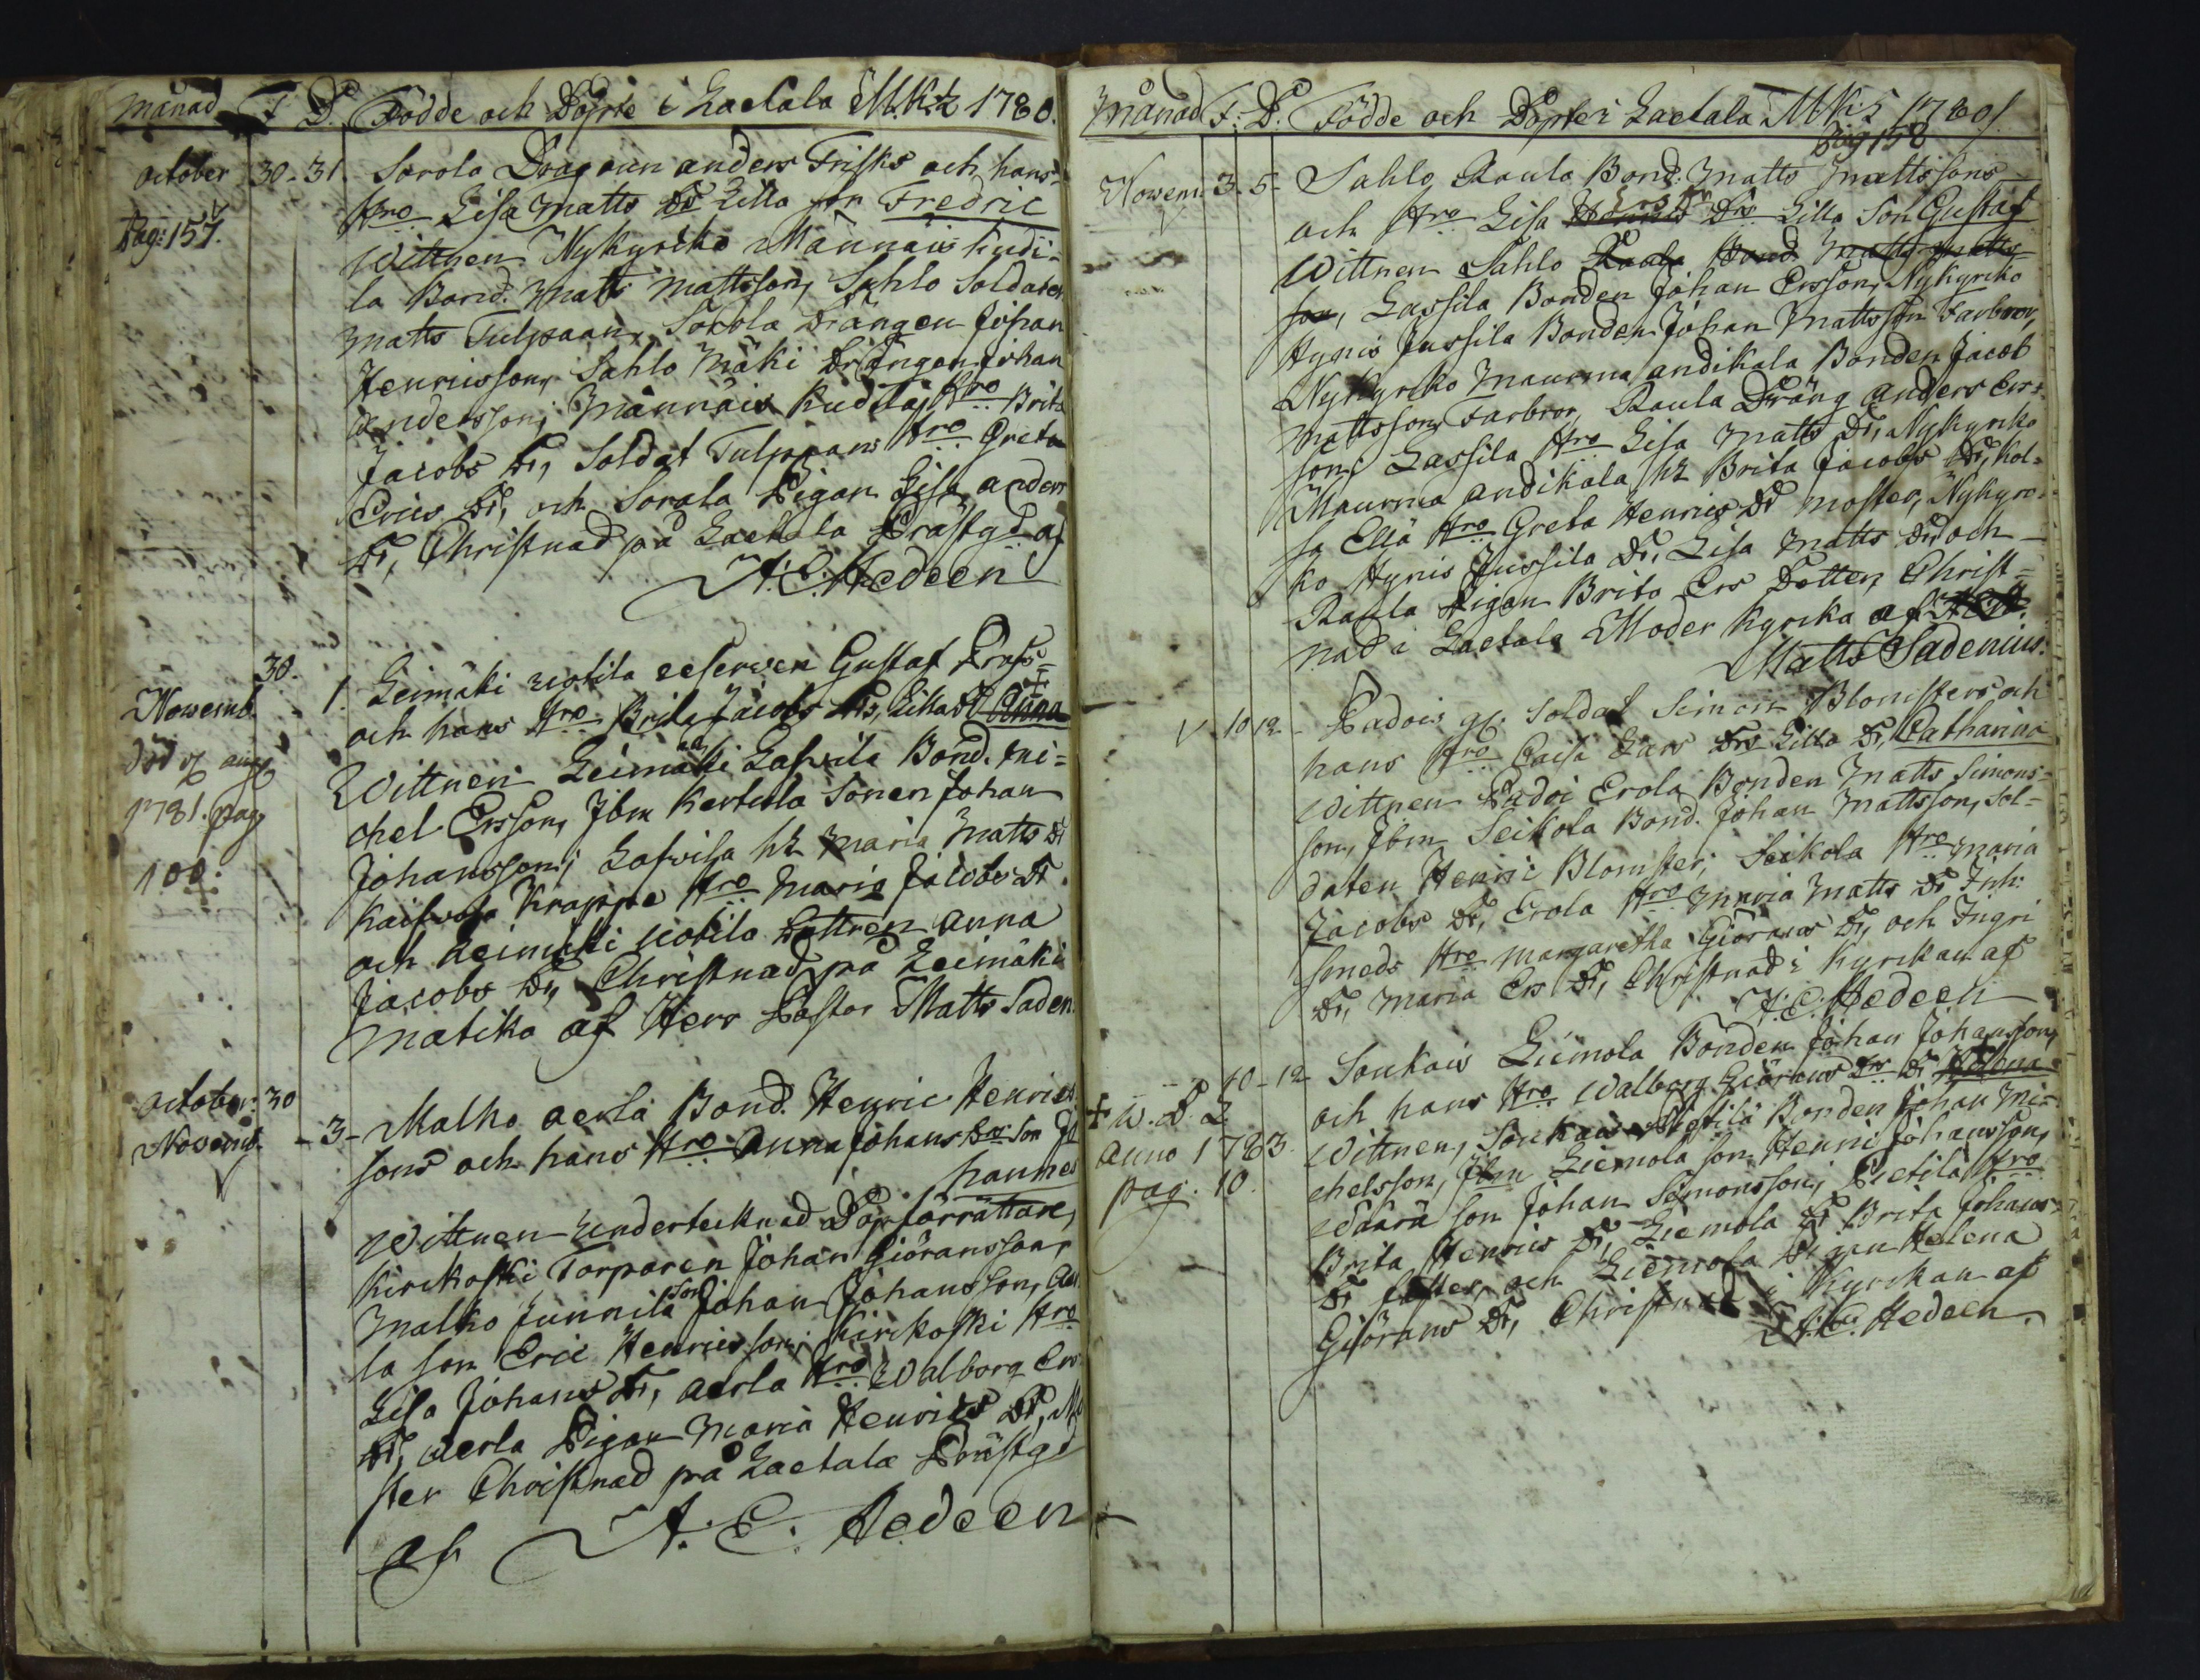 Månad F. D. Födde och Döpte i Laetala M.K:a 1780.
October 30-31. Sorola Dragoun anders Frisks och hans
Hro Lisa Matts Dr Lilla son Fredric
Pag: 157.
Wittnen Nykyrcko Männäis kudi-
la Bond. Matts Mattsson, Sahlo Soldaten
Matts Tulpaan, Sorola Drängen Johan
Henricsson, Sahlo Mäki Drängen Johan
Andersson; Männäis Kudila Hro Brita
Jacobs Dr, Soldat Tulppans Hro Greta
Erics Dr, och Sorola Pigan Lisa anders
Dr, Christnad på Laetala Prästgd af
A.C. Hedeen
30.
Nowemb. 1. Leimäki uotila reserven Gustaf
och hans Hro Brita Jacobs Drs, Lilla Dr Anna
död aug
1781. pag
100:
Wittnen Leimäki Lasvila Bond. Mi-
chel Ersson, Jbm Kertula Sonen Johan
Johansson; Lasvila hu Maria Matts Dr
Krappe Hro Maria Jacobs Dr
och Leimäki uotila Dottren Anna
Jacobs Dr, Christnad på Leimäki
Matika af Herr Pastor Matts Saden.
October: 30
Nowemb. -3- Malko aerla Bond. Henric Henrics
sons och hans Hro Anna Johans Drs Son Jo
hannes
Wittnen Undertecknad Döpförrättare,
Kirikoski Torparen Johan Giöransson,
Malko Junnila son Johan Johansson, Aer
la son Eric Henricsson; Kirikoski Hro
Lisa Johans Dr, aerla Hro Walborg Ers
Dr, aerla Pigan Maria Henrics Dr, Mo
ster Christnad på Laetala Prästgd
af A. C. Hedeen
Månad F. D. Födde och Döpte i Laetala M.K:a 1780
Pag 158
Nowem. 3. 5. Sahlo Raula Bond. Matts Mattssons
och Hro Lisa Ers Drs Lilla Son Gustaf
Wittnen Sahlo Raula Bond. Matts Matts-
son, Lassila Bonden Johan Ersson, Nykyrcko
Hypnis Jussila Bonden Johan Mattsson Farbror,
Nykyrcko Maurma andikala Bonden Jacob
Mattsson Farbror, Raula Dräng Anders Ers-
son; Lassila Hro Lisa Matts Dr, Nykyrcko
Maurma andikala hu Brita Jacobs Dr, Kol-
la Ellä Hro Greta Henrics Dr Moster, Nykyrc-
ko Hypnis Jussila Dr, Lisa Matts Dr, och
Raula Pigan Brita Ers Dotter, Christ-
nad i Laetala Moder Kyrcka af
Matts Sadenius.
10 12 - Padois gl. Soldat Simon Blomsters och
hans Hro Caisa Lars Drs Lilla Dr, Catharina
Wittnen Padoi Erola Bonden Matts Simons-
son, Jbm Seikola Bond. Johan Mattsson, Sol-
daten Henric Blomster; Seikola Hro Maria
Jacobs Dr, Erola Hro Maria Matts Dr Inh:
Smeds Hro Margaretha Giörans Dr, och Ingri
Dr, Maria Ers Dr, Christnad i Kyrckan af
A.C. Hedeen
10-12 Soukais Liemola Bonden Johan Johansson,
och hans Hro Walborg Giörans Drs Dr Helena
+ w. P. L
anno 1783.
pag. 10.
Wittnen, Soukais Nigtilä Bonden Johan Mi-
chelsson, Jbm Liemola son Henric Johansson,
Wäärä son Johan Simonsson; Pietilä Hro
Brita Henrics Dr, Liemola Dr Brita Johans
Dr faster, och Liemola Pigan Helena
Giörans Dr, Christnad i Kyrckan af
A.C. Hedeen.